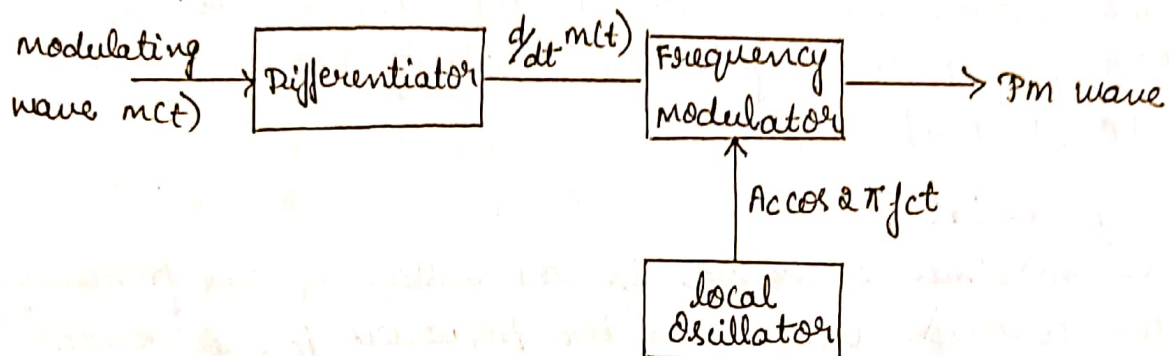 modulating
wave m(t)
Differentiator
d/dt m(t)
Frequency
Modulator
PM wave
Ac cos 2πfct
local
Oscillator